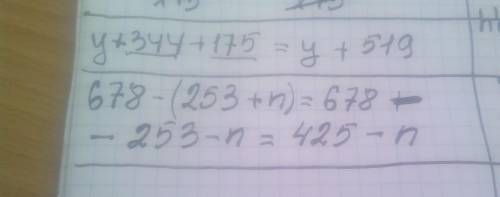 y+344+175=y+519
678-(253+n)=678-
-253-n=425-n